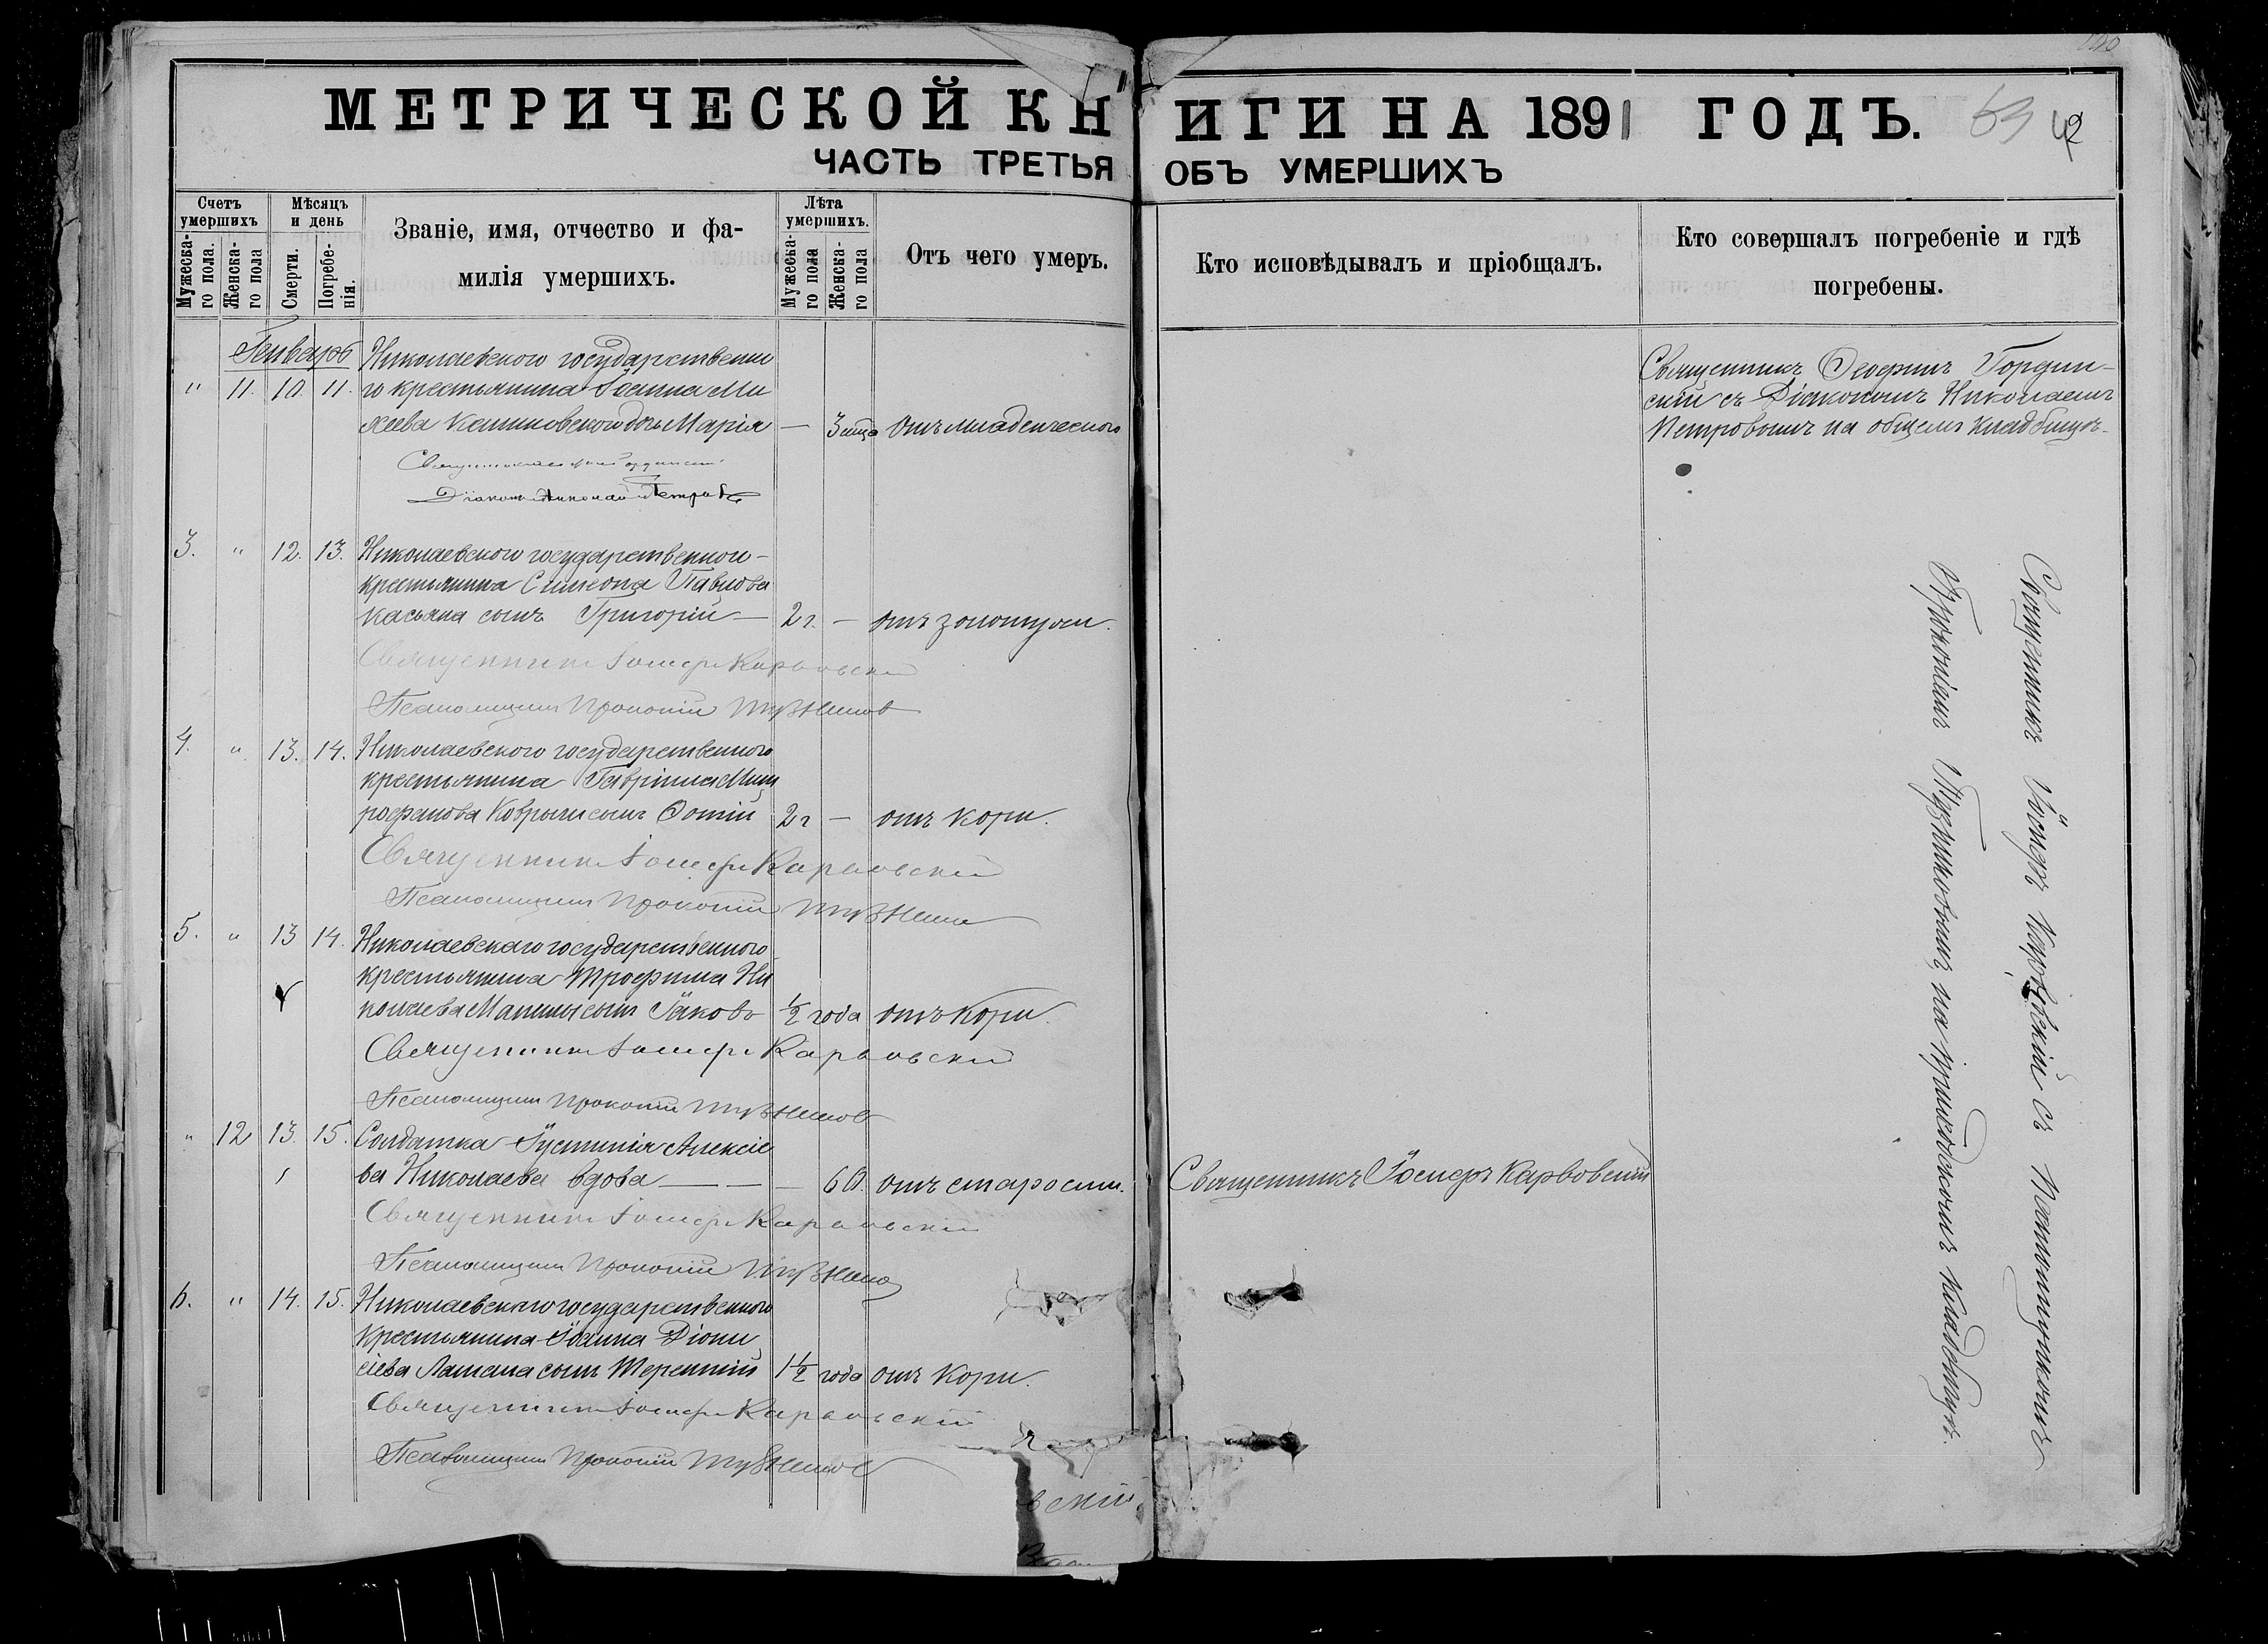 МЕТРИЧЕСКОЙ КНИГИ НА 1891 ГОДЪ.
42
ЧАСТЬ ТРЕТЬЯ ОБЪ УМЕРШИХЪ
Счетъ умершихъ
Мужеска-го пола.
Женска-го пола
Мѣсяцъ и день
Смерти.
Погребе-нія.
Званіе, имя, отчество и фа-
милія умершихъ.
Лѣта умершихъ.
Мужеска-го пола
Женска-го пола
Отъ чего умеръ.
Кто исповѣдывалъ и пріобщалъ.
Кто совершалъ погребеніе и гдѣ
погребены.
Генварь
" 11. 10. 11.
Николаевского государственно
го крестьянина Іоанна Ми
хеева Калиновского дочь Марія — 3 мца отъ младенческого
Священникъ
Діаконъ Николай Петровъ
Священникъ Георгій Гордин-
скій съ Діакономъ Николаемъ
Петровымъ на общемъ кладбищѣ.
3. " 12. 13. Николаевского государственного
крестьянина Симеона Павлова
Касьяна сынъ Григорій — 2 г. — отъ золотухи.
Священникъ Іосифъ Карвовскій
Псаломщикъ Прокопій
4. " 13. 14. Николаевского государственного
крестьянина Гавріила Мит
рофанова Коврыги сынъ Фотій 2 г — отъ кори.
Священникъ Іосифъ Карвовскій
Псаломщикъ Прокопій
5. " 13 14. Николаевскаго государственного
крестьянина Трофима Ни
колаева сынъ Іаковъ ½ года отъ кори.
Священникъ Іосифъ Карвовскій
Псаломщикъ Прокопій
" 12 13. 15. Солдатка Іустинія Алексіе
ва Николаева вдова — — — 60. отъ старости. Священникъ Іосифъ Карвовскій
Священникъ Іосифъ Карвовскій
Псаломщикъ Прокопій
6. " 14. 15. Николаевского государственного
крестьянина Іоанна Діони
сіева сынъ Терентій 1½ года отъ кори.
Священникъ Іосифъ Карвовскій
Псаломщикъ Прокопій
вскій
Священникъ Іосифъ Карвовскій съ Псаломщикомъ
Прокопіемъ на приходскомъ кладбищѣ.